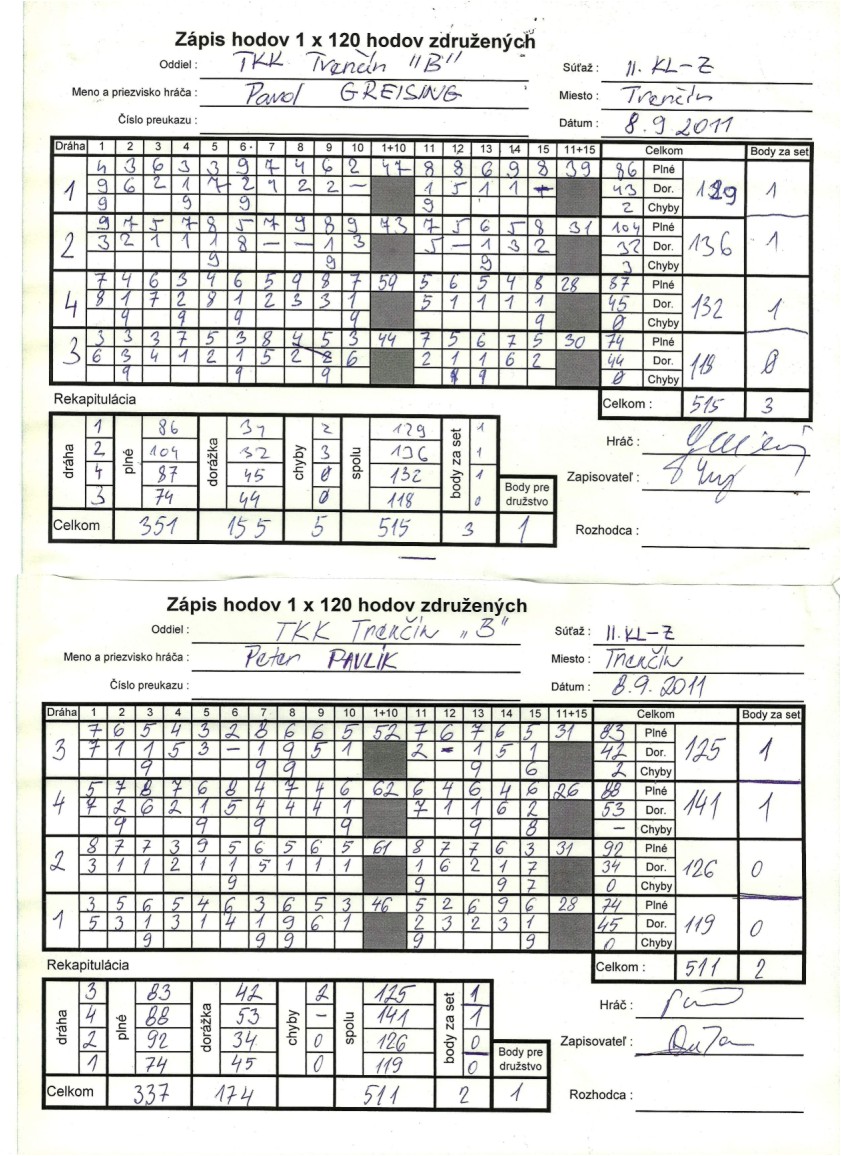 Zápis hodov 1 x 120 hodov združených
Oddiel : TKK Trenčín "B" Súťaž : II. KL-Z
Meno a priezvisko hráča : Pavol GREISING Miesto : Trenčín
Číslo preukazu : Dátum : 8.9 2011
Dráha 1 2 3 4 5 6 7 8 9 10 1+10 11 12 13 14 15 11+15 Celkom Body za set
1 4 3 6 3 3 9 7 4 6 2 47 8 8 6 9 8 39 86 Plné 129 1
9 6 2 1 7 2 1 2 2 – 1 5 1 1 43 Dor.
9 4 9 9 2 Chyby
2 9 7 5 7 8 5 7 9 8 9 73 7 5 6 5 8 31 104 Plné 136 1
3 2 1 1 1 8 – – 1 3 5 – 1 3 2 32 Dor.
9 9 9 3 Chyby
4 7 4 6 3 4 6 5 9 8 7 59 5 6 5 4 8 28 87 Plné 132 1
8 1 7 2 8 1 2 3 3 1 5 1 1 1 1 45 Dor.
9 9 9 9 9 0 Chyby
3 3 3 3 7 5 3 8 4 5 3 44 7 5 6 7 5 30 74 Plné 118 0
6 3 4 1 2 1 5 2 2 6 2 1 1 6 2 44 Dor.
9 9 9 9 0 Chyby
Rekapitulácia Celkom : 515 3
dráha plné dorážka chyby spolu body za set
1 86 2 129 1
2 104 32 3 136 1
4 87 45 0 132 1
3 74 44 0 118 0
Hráč :
Zapisovateľ :
Body pre družstvo
Celkom 351 155 5 515 3 1 Rozhodca :
Zápis hodov 1 x 120 hodov združených
Oddiel : TKK Trenčín „B" Súťaž : II. KL-Z
Meno a priezvisko hráča : Peter PAVLÍK Miesto : Trenčín
Číslo preukazu : Dátum : 8.9.2011
Dráha 1 2 3 4 5 6 7 8 9 10 1+10 11 12 13 14 15 11+15 Celkom Body za set
3 7 6 5 4 3 2 8 6 6 5 52 7 6 7 6 5 31 83 Plné 125 1
7 1 1 5 3 – 1 9 5 1 2 – 1 5 1 42 Dor.
9 9 9 9 6 2 Chyby
4 5 7 8 7 6 8 4 7 4 6 62 6 4 6 4 6 26 88 Plné 141 1
7 2 6 2 1 5 4 4 4 1 7 1 1 6 2 53 Dor.
9 9 9 9 9 8 – Chyby
2 8 7 7 3 9 5 6 5 6 5 61 8 7 7 6 3 31 92 Plné 126 0
3 1 1 2 1 1 5 1 1 1 1 6 2 1 7 34 Dor.
9 9 9 7 0 Chyby
1 3 5 6 5 4 6 3 6 5 3 46 5 2 6 9 6 28 74 Plné 119 0
5 3 1 3 1 4 1 9 6 1 2 3 2 3 1 45 Dor.
9 9 9 9 9 0 Chyby
Rekapitulácia Celkom : 511 2
dráha plné dorážka chyby spolu body za set
3 83 42 2 125 1
4 88 53 – 141 1
2 92 34 0 126 0
1 74 45 0 119 0
Hráč :
Zapisovateľ :
Body pre družstvo
Celkom 337 174 511 2 1 Rozhodca :